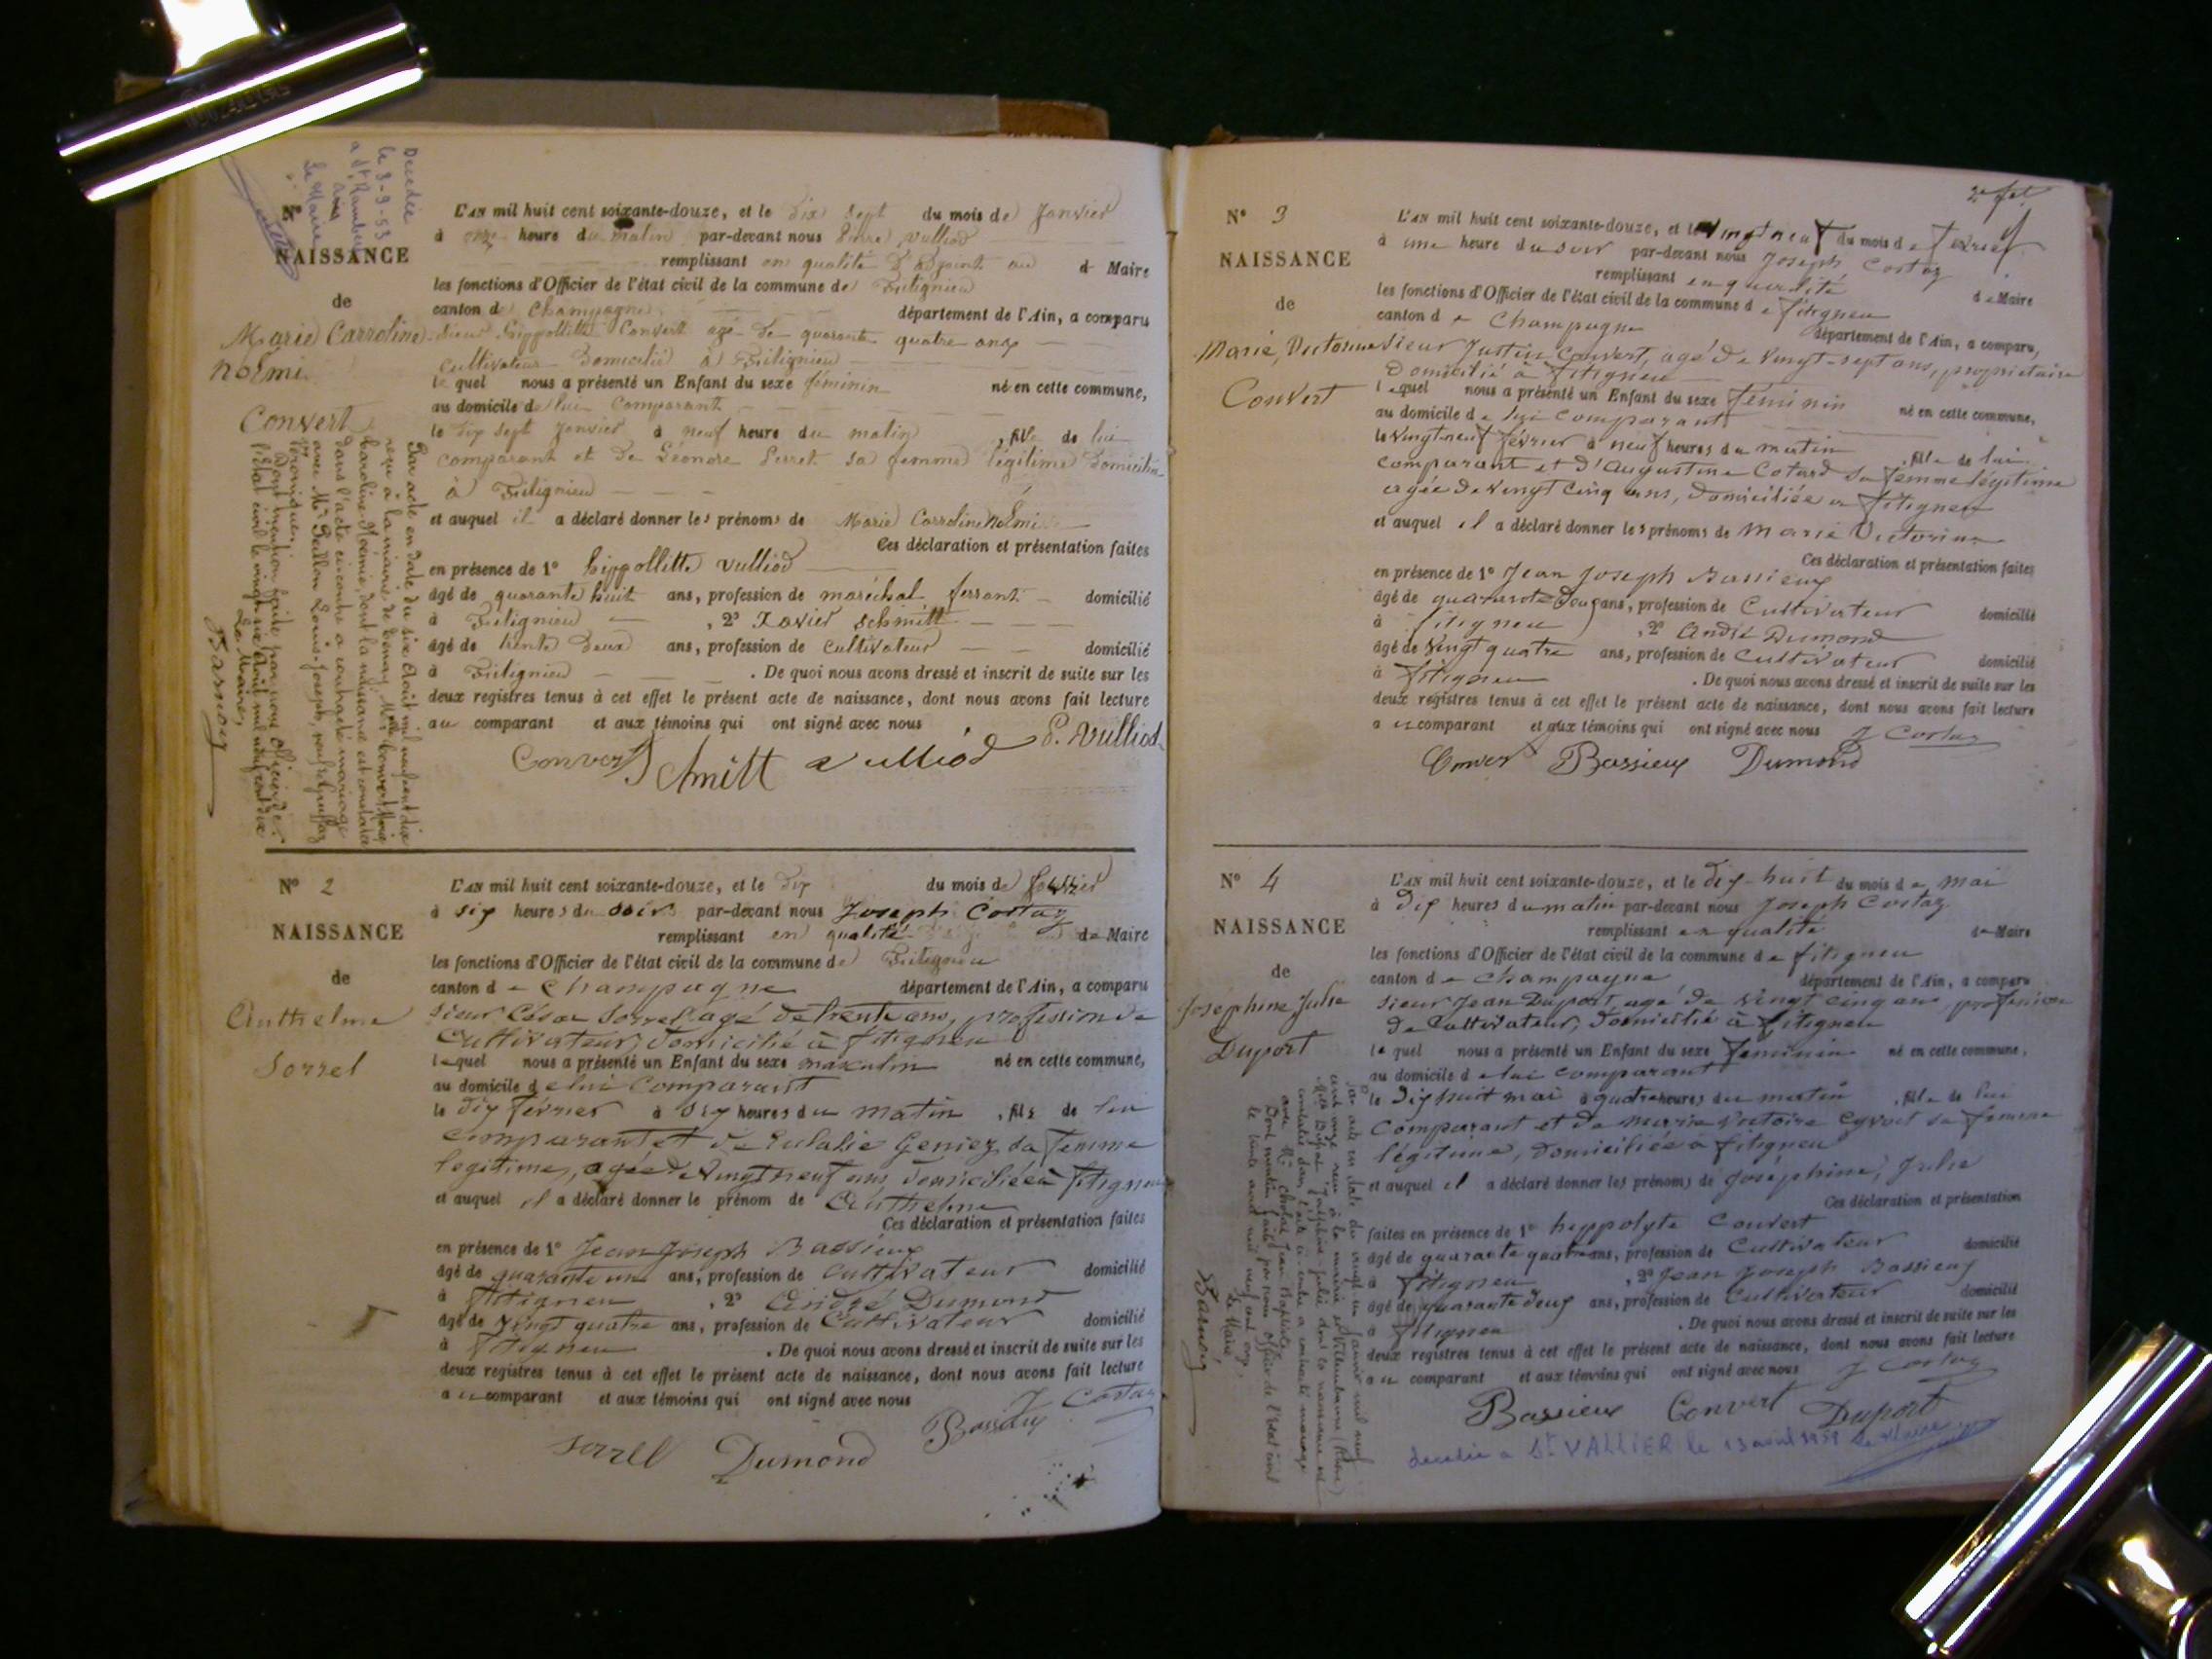 Décédée
le 3-9-53
a St Rambert
Le Maire
NAISSANCE
de
Marie Carroline
noémi
Convert
L'AN mil huit cent soixante-douze, et le dix sept du mois de Janvier
à onze heure du matin par-devant nous Pierre Vulliod
remplissant en qualité d'adjoint au d Maire
les fonctions d'Officier de l'état civil de la commune de Fitignieu
canton de Champagne département de l'Ain, a comparu
sieur hippollitte Convert agé de quarante quatre ans
cultivateur domicilié à Fitignieu
le quel nous a présenté un Enfant du sexe féminin né en cette commune,
au domicile de lui comparant
le dix sept Janvier à neuf heure du matin, fille de lui
comparant et de Léonore Perret sa femme légitime domiciliée
à Fitignieu
et auquel il a déclaré donner les prénoms de Marie Carroline Noémi
Ces déclaration et présentation faites
en présence de 1° hippollitte Vulliod
âgé de quarante huit ans, profession de maréchal ferrant domicilié
à Fitignieu, 2° Xavier Schmitt
âgé de trente deux ans, profession de cultivateur domicilié
à Fitignieu. De quoi nous avons dressé et inscrit de suite sur les
deux registres tenus à cet effet le présent acte de naissance, dont nous avons fait lecture
au comparant et aux témoins qui ont signé avec nous P. Vulliod
Convert Schmitt Vulliod
Par acte en date du six Août mil neuf cent dix
reçu à la mairie de
Caroline Noémie, dont la naissance est constatée
dans l'acte ci-contre a contracté mariage
avec Mr Louis-Joseph,
Dont mention faite par nous officier de
l'état civil le mil neuf cent dix
Le Maire,
N° 2
NAISSANCE
de
Anthelme
Sorrel
L'AN mil huit cent soixante-douze, et le dix du mois de février
à six heures du soir par-devant nous Joseph Costaz
remplissant en qualité de Maire
les fonctions d'Officier de l'état civil de la commune de Fitignieu
canton de Champagne département de l'Ain, a comparu
sieur César Sorrel agé de trente ans, profession de
Cultivateur, domicilié à fitignieu
lequel nous a présenté un Enfant du sexe maxculin né en cette commune,
au domicile de lui comparant
le dix février à six heures du matin, fils de lui
comparant et de Eulalie Geniez sa femme
legitime, agée de vingt neuf ans, domiciliée à fitignieu
et auquel il a déclaré donner le prénom de Anthelme
Ces déclaration et présentation faites
en présence de 1° Jean Joseph Bassieux
âgé de quarante un ans, profession de Cultivateur domicilié
à fitignieu, 2° André Dumond
âgé de vingt quatre ans, profession de Cultivateur domicilié
à fitignieu. De quoi nous avons dressé et inscrit de suite sur les
deux registres tenus à cet effet le présent acte de naissance, dont nous avons fait lecture
au comparant et aux témoins qui ont signé avec nous J Costaz
Sorrel Dumond Bassieux
N° 3
NAISSANCE
de
Marie, Victorine
Convert
L'AN mil huit cent soixante-douze, et le vingt neuf du mois de février
à une heure du soir par-devant nous Joseph Costaz
remplissant en qualité de Maire
les fonctions d'Officier de l'état civil de la commune de fitignieu
canton de Champagne département de l'Ain, a comparu,
sieur Justin Convert, agé de vingt-sept ans, propriétaire
Domicilié à fitignieu
lequel nous a présenté un Enfant du sexe féminin né en cette commune,
au domicile de lui comparant
le vingt-neuf février à neuf heures du matin, fille de lui
comparant et d'Augustine Cotard sa femme légitime
agée de vingt cinq ans, domiciliée à fitignieu
et auquel il a déclaré donner les prénoms de Marie Victorine
Ces déclaration et présentation faites
en présence de 1° Jean Joseph Bassieux
âgé de quarante deux ans, profession de Cultivateur domicilié
à fitignieu, 2° André Dumond
âgé de vingt quatre ans, profession de Cultivateur domicilié
à fitignieu. De quoi nous avons dressé et inscrit de suite sur les
deux registres tenus à cet effet le présent acte de naissance, dont nous avons fait lecture
au comparant et aux témoins qui ont signé avec nous J Costaz
Convert Bassieux Dumond
N° 4
NAISSANCE
de
Joséphine, Julie
Duport
L'AN mil huit cent soixante-douze, et le dix-huit du mois de mai
à dix heures du matin par-devant nous Joseph Costaz
remplissant en qualité de Maire
les fonctions d'Officier de l'état civil de la commune de fitignieu
canton de Champagne département de l'Ain, a comparu
sieur Jean Duport agé de vingt cinq ans, profession
de Cultivateur, domicilié à fitignieu
lequel nous a présenté un Enfant du sexe féminin né en cette commune,
au domicile de lui comparant
le dix huit mai à quatre heures du matin, fille de lui
comparant et de Marie Victoire sa femme
légitime, domiciliée à fitignieu
et auquel il a déclaré donner les prénoms de Joséphine, Julie
Ces déclaration et présentation
faites en présence de 1° hyppolyte Convert
âgé de quarante quatre ans, profession de Cultivateur domicilié
à fitignieu, 2° Jean Joseph Bassieux
âgé de quarante deux ans, profession de Cultivateur domicilié
à fitignieu. De quoi nous avons dressé et inscrit de suite sur les
deux registres tenus à cet effet le présent acte de naissance, dont nous avons fait lecture
au comparant et aux témoins qui ont signé avec nous J Costaz
Bassieux Convert Duport
décédée à St VALLIER le 13 avril 1959 Le Maire
Par acte en date du vingt un janvier mil neuf
cent onze reçu à la mairie de Villeurbanne (Rhône)
Mlle Duport Joséphine Julie dont la naissance est
constatée dans l'acte ci-contre a contracté mariage
avec Mr Jean Baptiste
Dont mention faite par nous officier de l'état civil
le mil neuf cent onze
Le Maire,